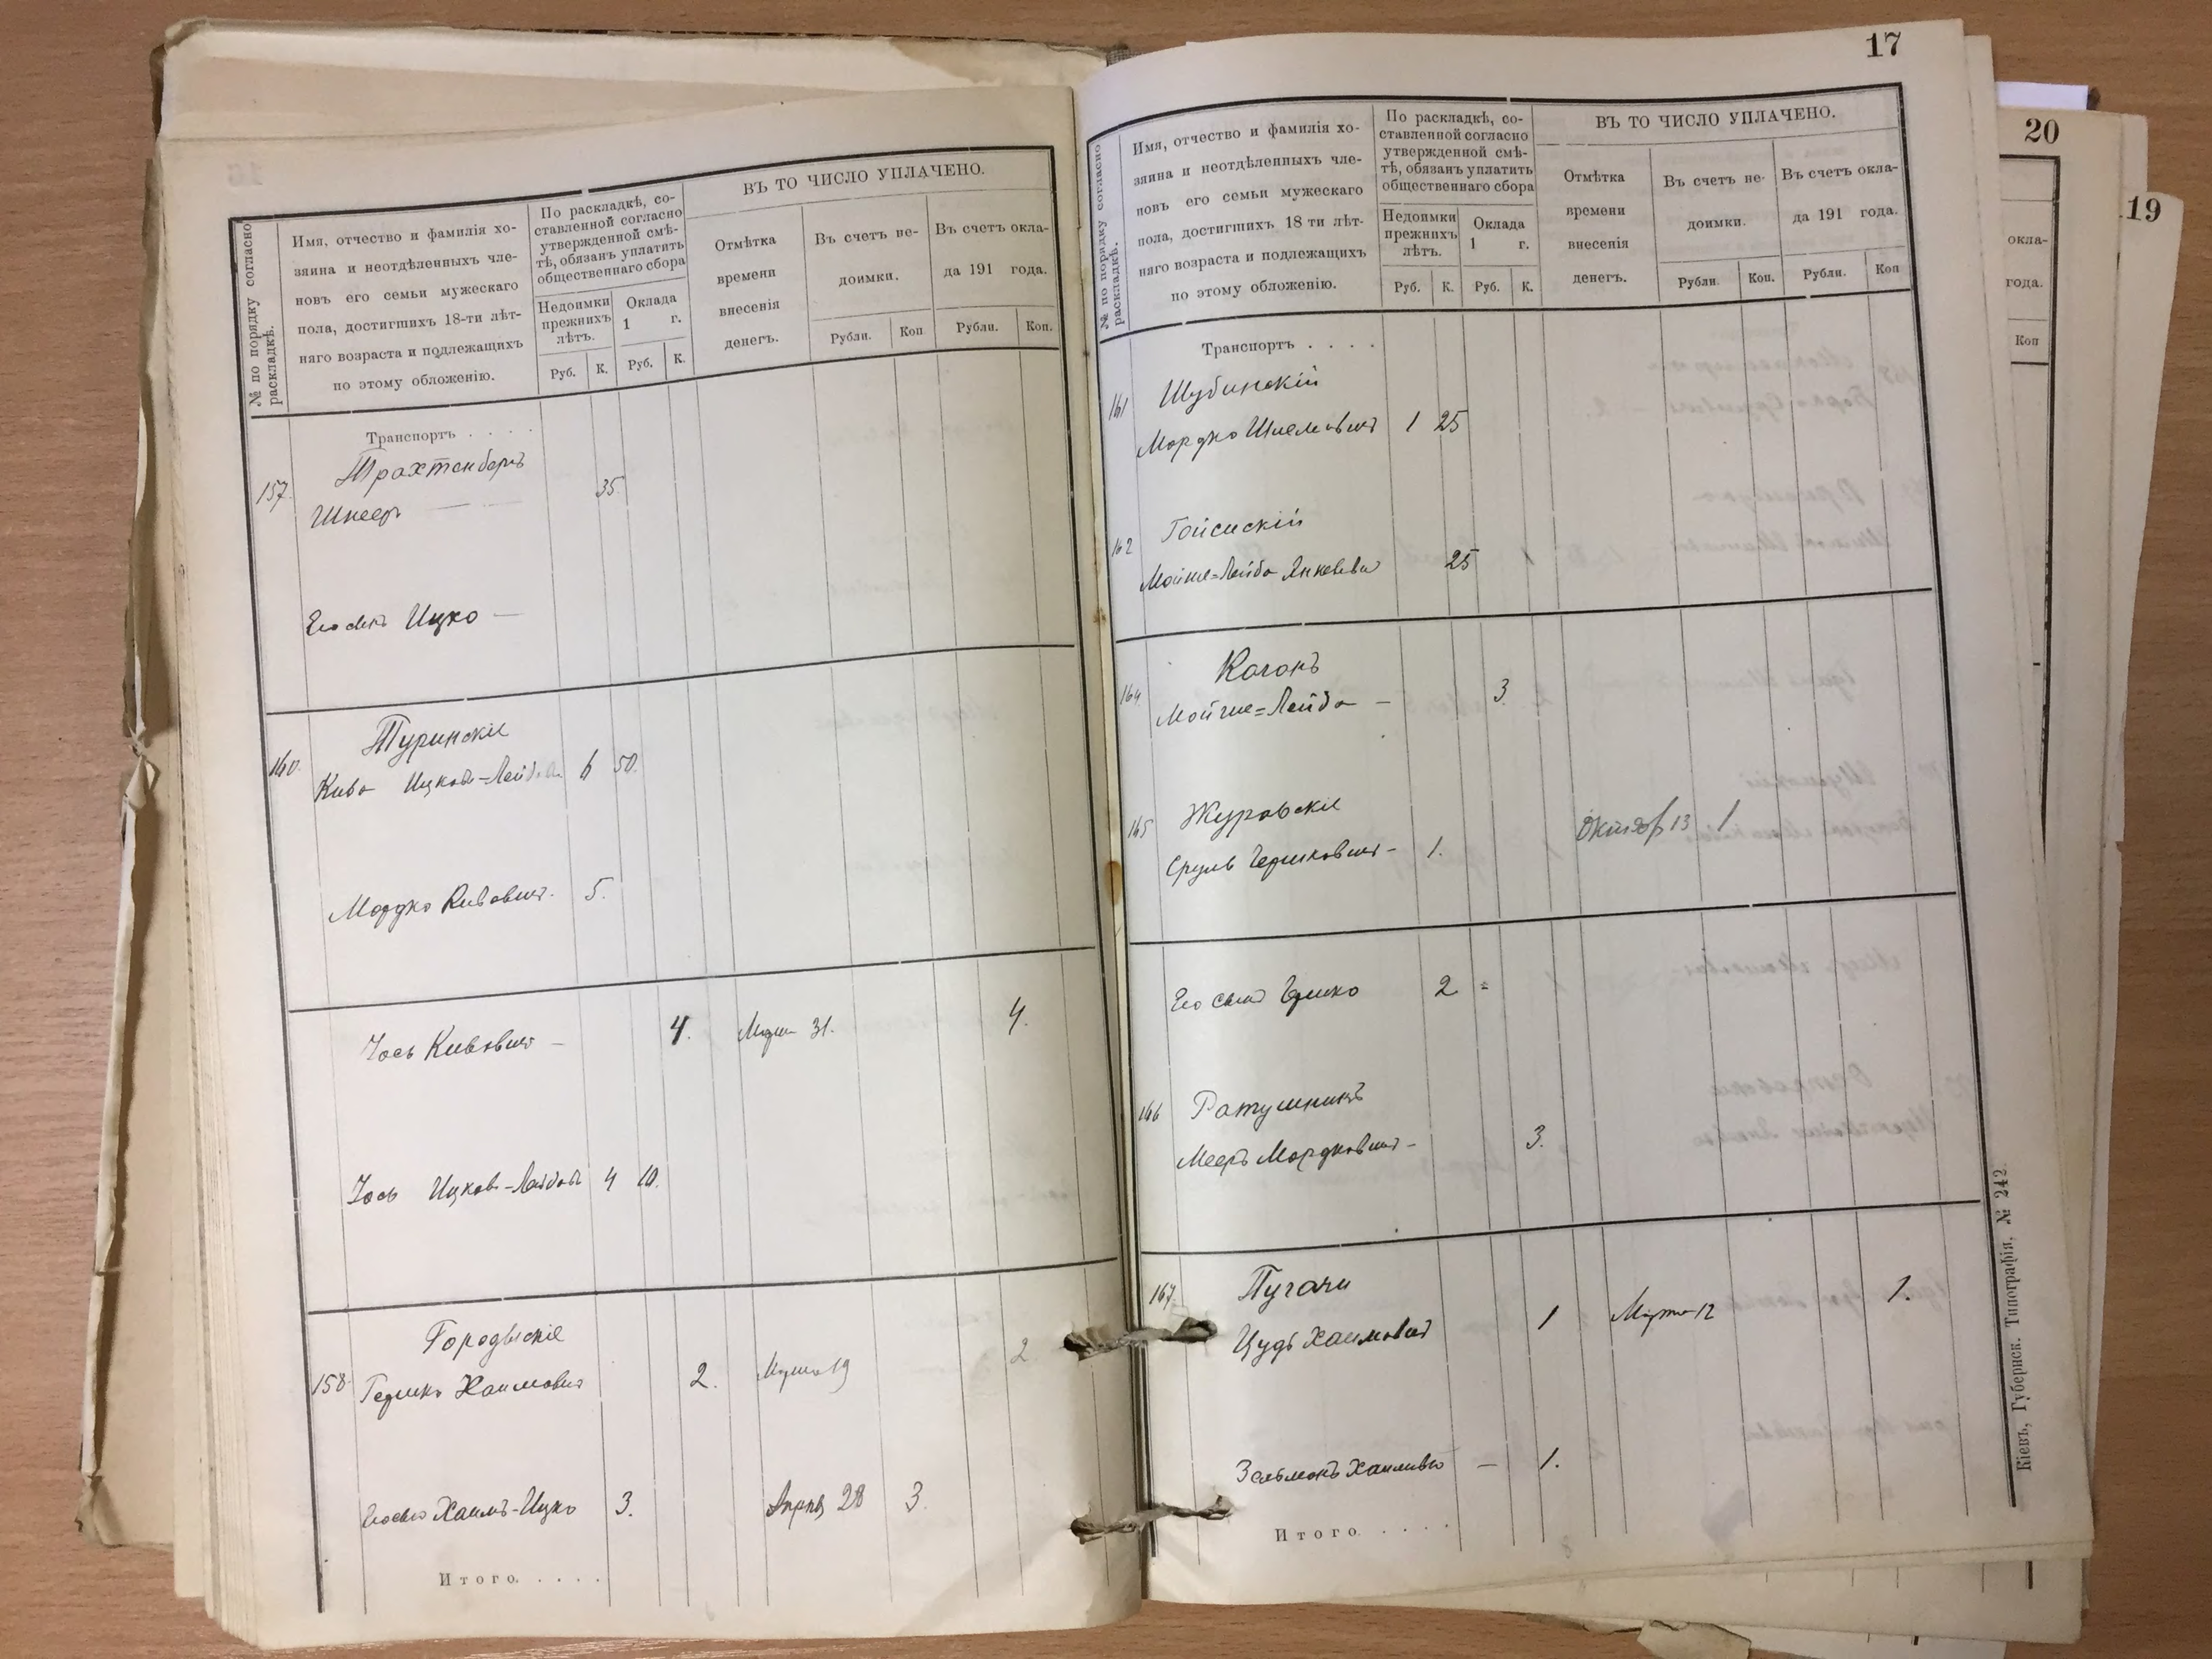 № по порядку согласно раскладкѣ.
Имя, отчество и фамилія хо-
зяина и неотдѣленныхъ чле-
новъ его семьи мужескаго
пола, достигшихъ 18-ти лѣт-
няго возраста и подлежащихъ
по этому обложенію.
По раскладкѣ, со-
ставленной согласно
утвержденной смѣ-
тѣ, обязанъ уплатить
общественнаго сбора
Недоимки
прежнихъ
лѣтъ.
Оклада
1 г.
Руб. К. Руб. К.
ВЪ ТО ЧИСЛО УПЛАЧЕНО.
Отмѣтка
времени
внесенія
денегъ.
Въ счетъ не-
доимки.
Рубли. Коп
Въ счетъ окла-
да 191 года.
Рубли. Коп.
Транспортъ . . . .
157. Трахтенберъ
Шнееръ 35.
Его сынъ Ицко —
160. Туринскіе
Кива Ицковъ-Лейбов 6 50.
Мордко Кивович. 5.
Іось Кивович — 4. Марта 31. 4.
Іось Ицков-Лейбов 4 10.
158. Городыскіе
Гершко Хаимович 2. Марта 19 2
Его сын Хаимъ-Ицко 3. Апрѣ 28 3.
Итого. . . . .
17
№ по порядку согласно раскладкѣ.
Имя, отчество и фамилія хо-
зяина и неотдѣленныхъ чле-
новъ его семьи мужескаго
пола, достигшихъ 18 ти лѣт-
няго возраста и подлежащихъ
по этому обложенію.
По раскладкѣ, со-
ставленной согласно
утвержденной смѣ-
тѣ, обязанъ уплатить
общественнаго сбора
Недоимки
прежнихъ
лѣтъ.
Оклада
1 г.
Руб. К. Руб. К.
ВЪ ТО ЧИСЛО УПЛАЧЕНО.
Отмѣтка
времени
внесенія
денегъ.
Въ счетъ не-
доимки.
Рубли. Коп.
Въ счетъ окла-
да 191 года.
Рубли. Коп
Транспортъ . . . .
161 Шубинскій
Мордко Шлемович 1 25
162 Гойсискій
Мойше=Лейба Янкелев 25
164. Коганъ
Мойше=Лейба — 3.
165 Журавскіе
Сруль Гершкович — 1. Октябр 13 1
Его сын Гершко 2 =
166 Ратушникъ
Мееръ Мордкович — 3.
167. Пугачи
Цудъ Хаимович 1 Марта 12 1.
Зельманъ Хаимов — 1.
Итого. . . . .
Кіевъ, Губернск. Типографія, № 242.
20
окла-
года.
Коп
19